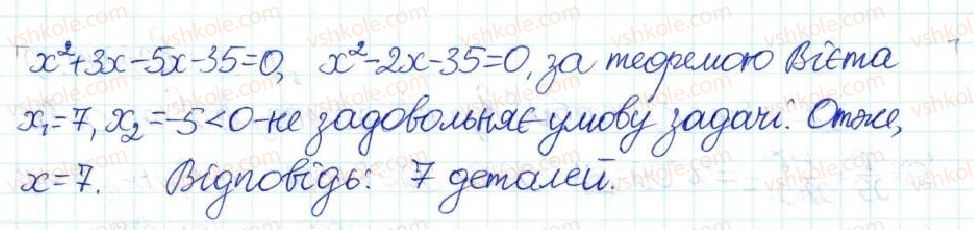 x²+3x-5x-35=0, x²-2x-35=0, за теоремою Вієта
x₁=7, x₂=-5<0-не задовольняє умову задачі. Отже,
x=7. Відповідь: 7 деталей.